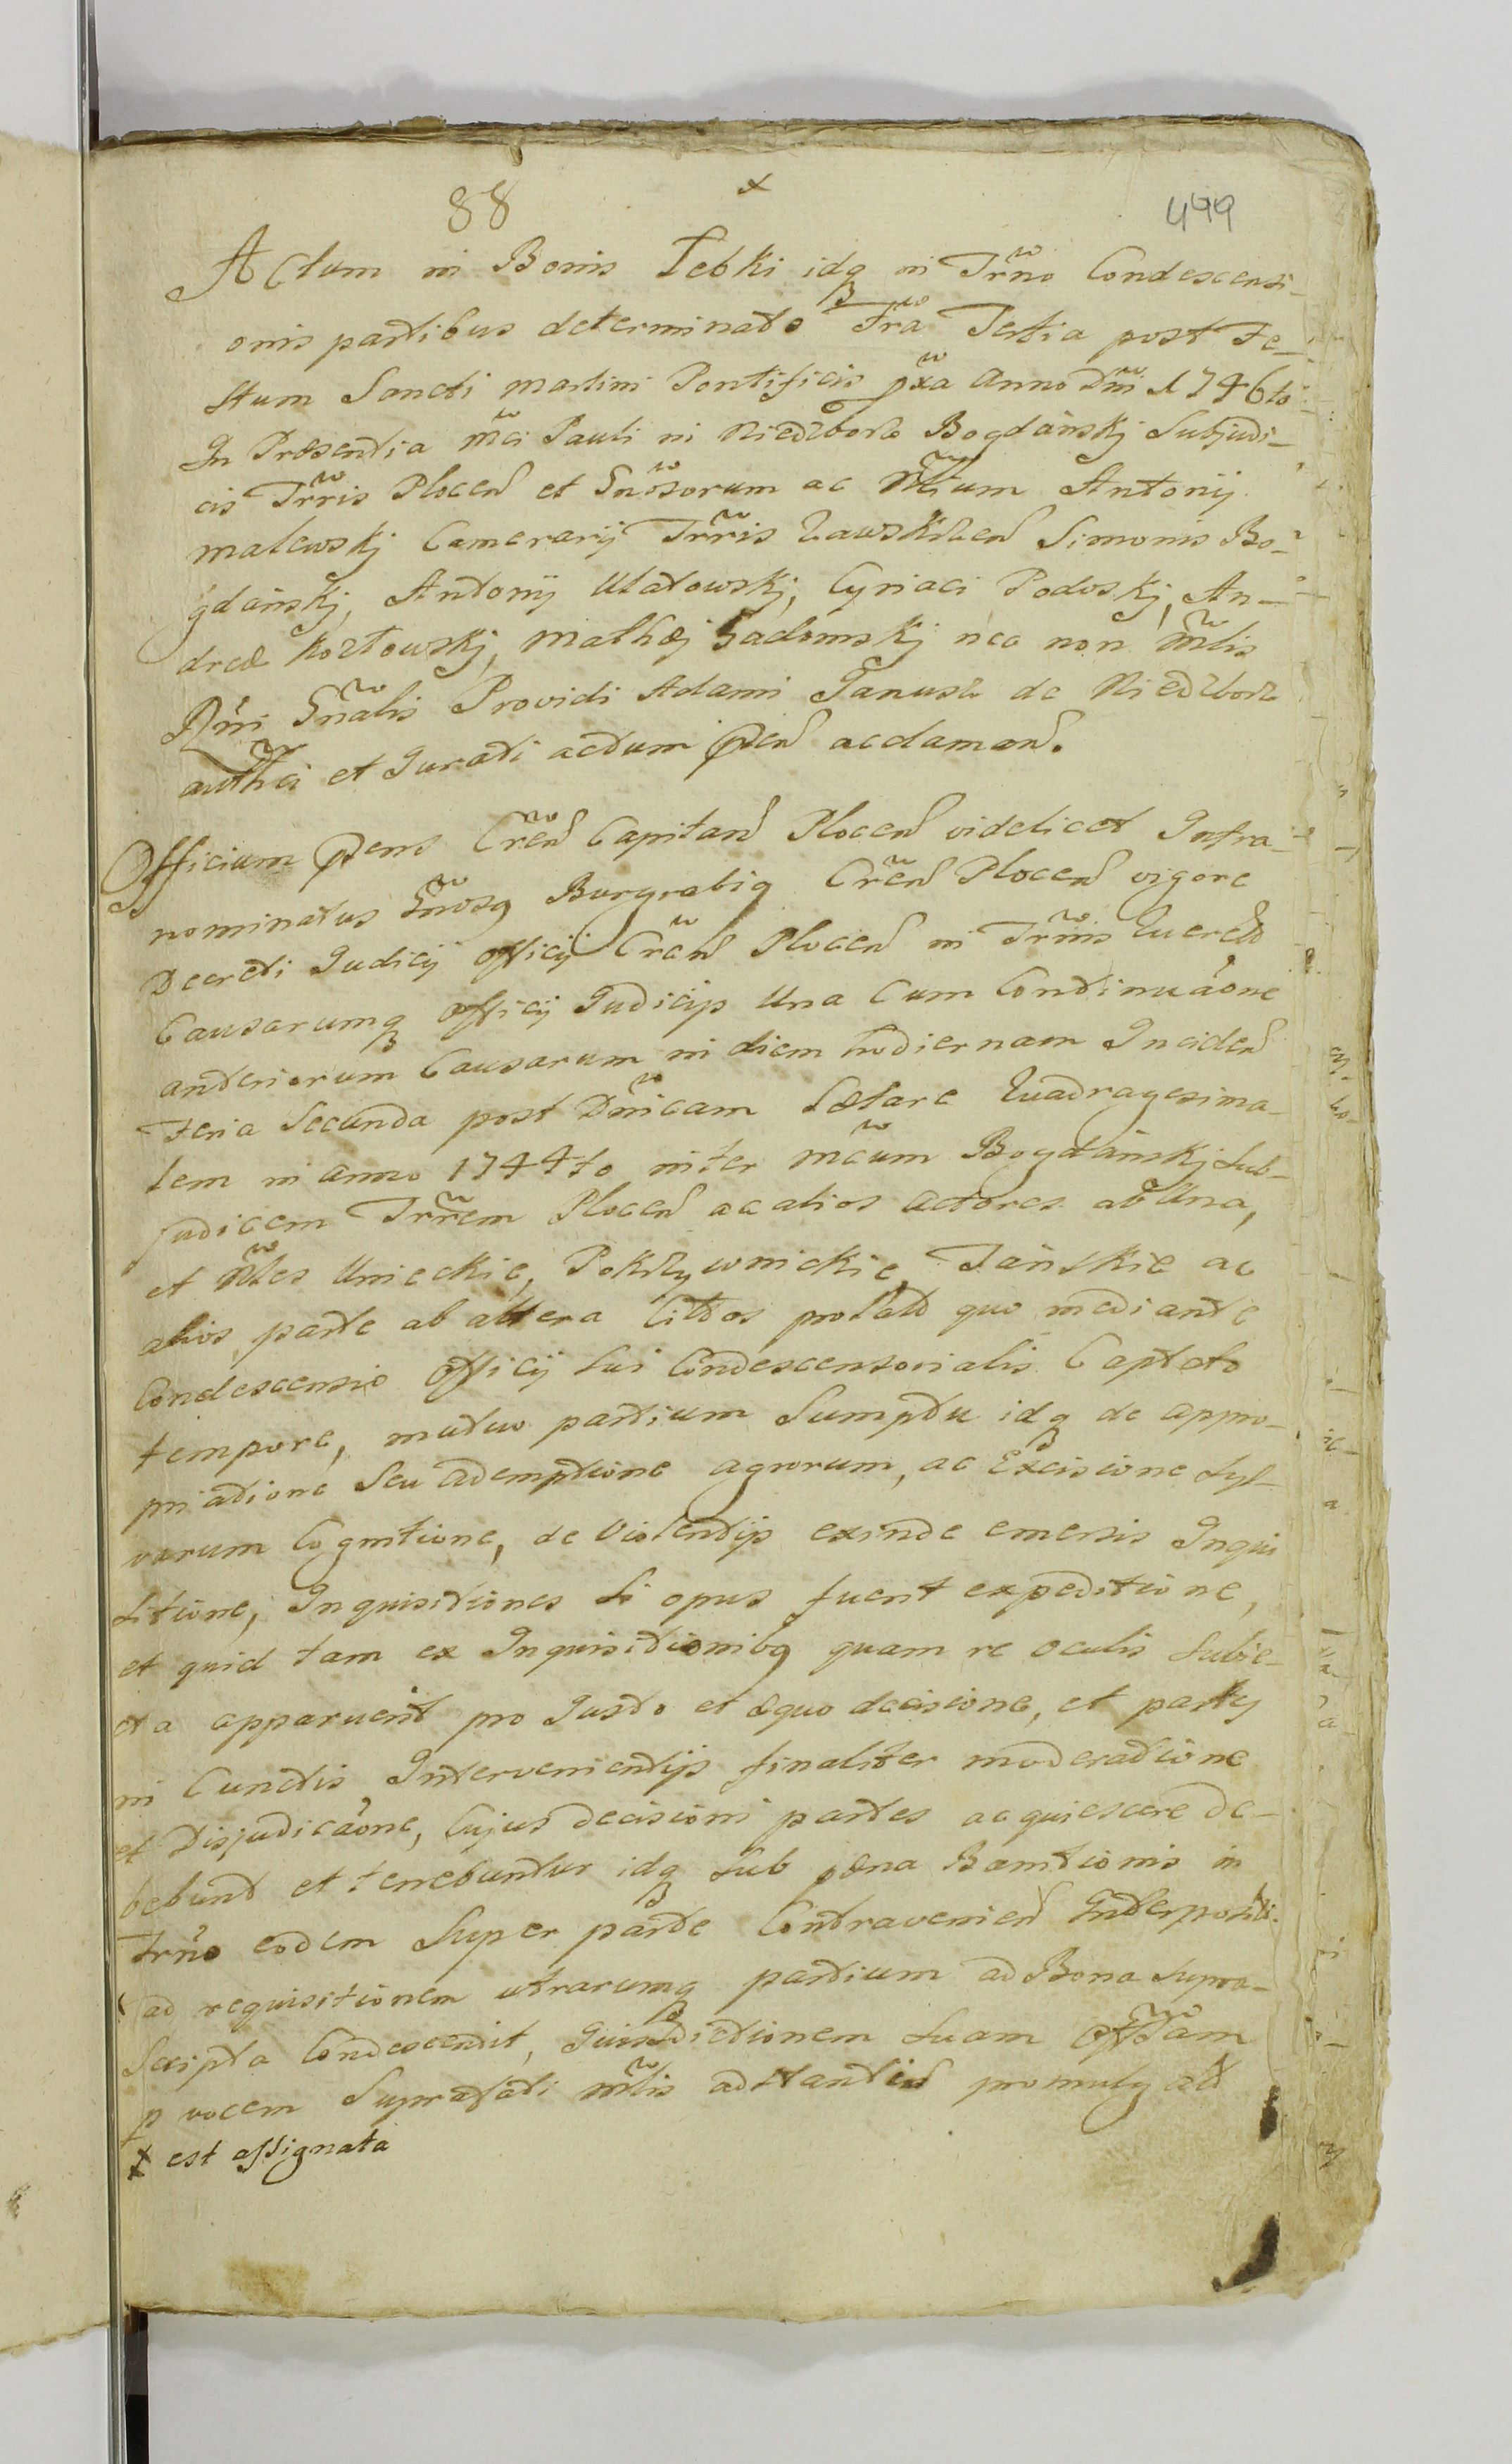 88 x 499
Actum in Bonis Łebki idq in Trno Condescensi-
onis partibus determinato Fra Tertia post Fe-
stum Sancti Martini Pontificis pxa Anno Dni 1746to
In Præsentia Mci Pauli in Niedzborz Bogdański Subjudi-
cis Trris Plocen et Gnosorum ac Nblium Antonij
Malewskj Camerarij Trris Zawskrzen Simonis Bo-
gdańskj, Antonij Ulatowskj, Cyriaci Podoskj, An-
dreæ Kozłowskj, Mathæj Gadomskj nec non Mtlis
Rni Gnalis Providi Adami Janusz de Niedzborz
autthci et Jurati actum pten acclaman.
Officium ptens Cren Capitan Plocen videlicet Infra-
nominatus Gnosq Burgrabiq Cren Plocen vigore
Decreti Judicij Officij Cren Plocen in Trmis Querel
Causarumq Officij Judicijs Una Cum Continuaone
anteriorum Causarum in diem hodiernam Inciden
Feria Secunda post Dnicam Lætare Quadragesima-
lem in anno 1744to inter Mcum Bogdańskj Sub-
judicem Trrem Plocen ac alios Actores ab Una,
et Nbles Unieckie, Pokrzywnickie, Tańskie ac
alios parte ab altera Cittos prolat quo mediante
Condescensio Officij Sui Condescensorialis Captato
tempore, mutuo partium Sumptu idq de appro-
priatione Seu ademptione agrorum, ac Excisione Syl-
varum Cognitione, de Violentijs exinde emersis Inqui
sitione, Inquisitiones Si opus fuerit expeditione,
et quid tam ex Inquisitionibq quam re oculis Subje-
cta apparuerit pro Justo et æquo decisione, et partes
in Cunctis Intervenientijs finaliter moderatione
et Disjudicaone, Cujus decisioni partes acquiescere de-
bebunt et tenebuntur idq Sub pœna Bannitionis in
Trno eodem Super parte Contravenien Interponi
x ad requisitionem utrarumq partium ad Bona Supra-
Scripta Condescendit, Jurisdictionem Suam
p vocem Suprafati Mtlis adstantis promulgat
x est assignata